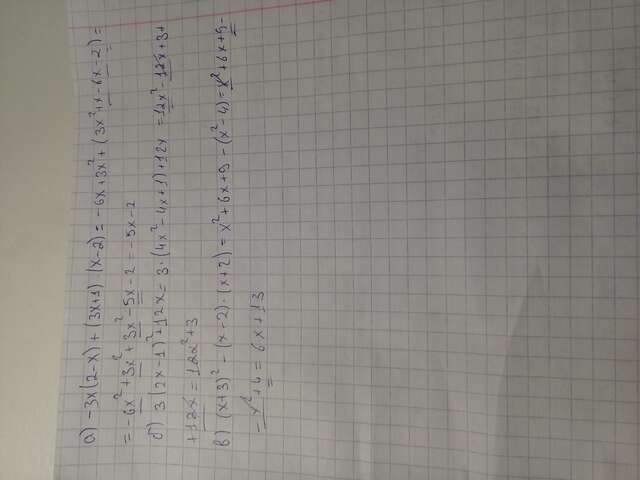 а) -3x(2-x)+(3x+1)·(x-2)=-6x+3x²+(3x²+x-6x-2)=
=-6x²+3x²+3x²-5x-2=-5x-2
б) 3(2x-1)²+12x=3·(4x²-4x+1)+12x=12x²-12x+3+
+12x=12x²+3
в) (x+3)²-(x-2)·(x+2)=x²+6x+9-(x²-4)=x²+6x+9-
-x²+4=6x+13